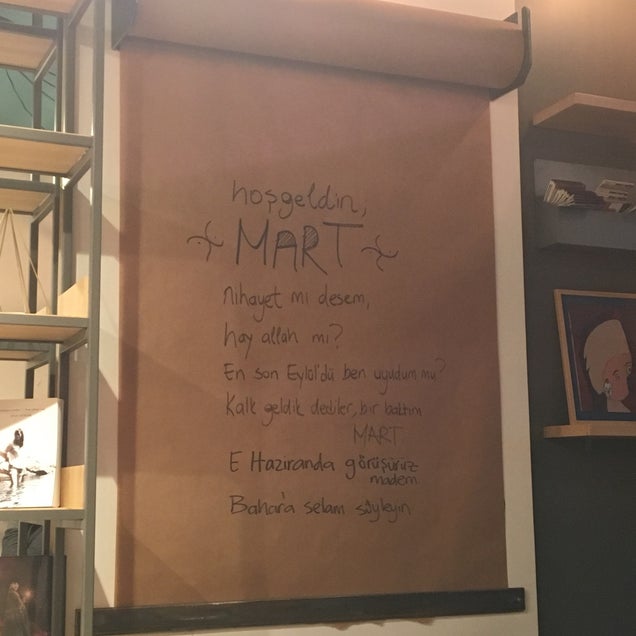 hoşgeldin,
MART
Nihayet mi desem,
hay allah mı?
En son Eylül'dü ben uyudum mu?
Kalk geldik dediler, bir baktım
MART.
E Haziranda görüşürüz
madem
Bahar'a selam söyleyin